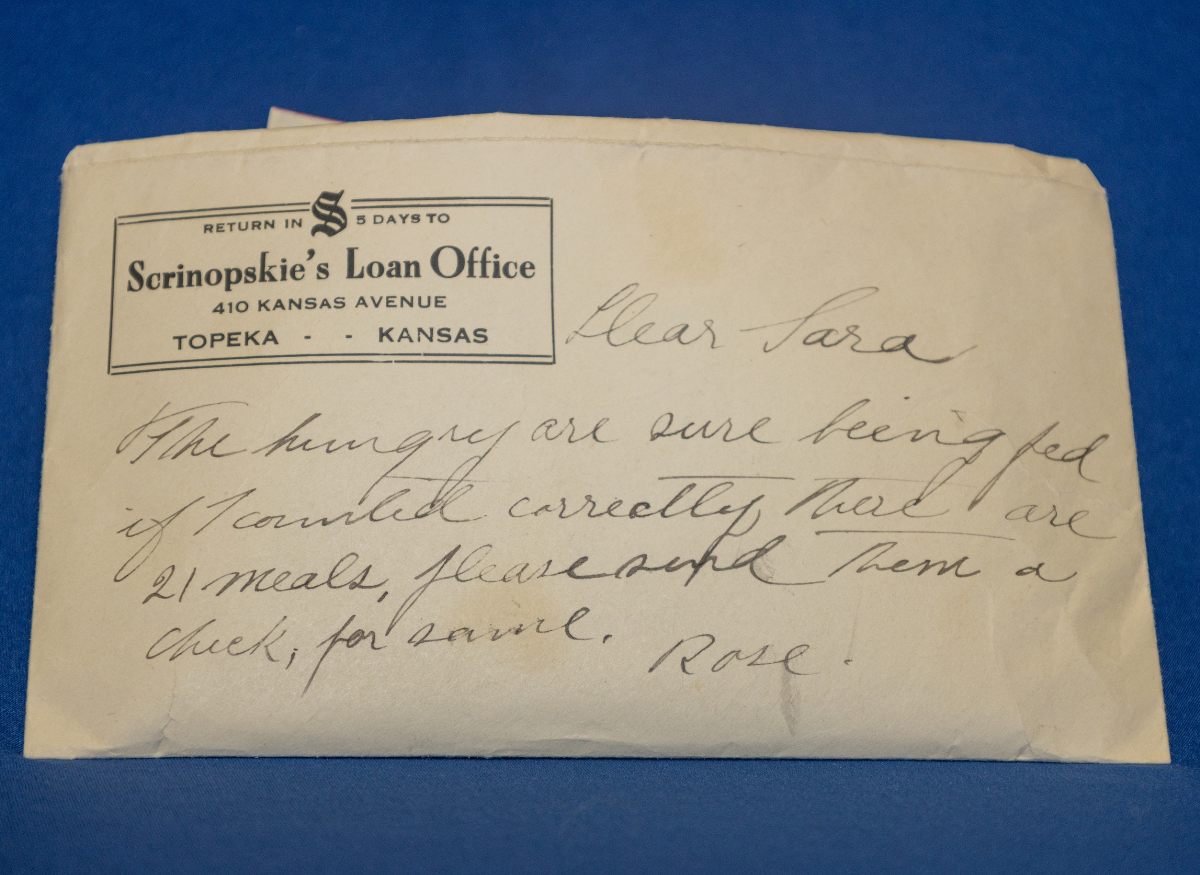 RETURN IN S 5 DAYS TO
Scrinopskie's Loan Office
410 KANSAS AVENUE
TOPEKA - - KANSAS
Dear Sara
The hungry are sure being fed
if I counted correctly there are
21 meals, please send them a
check, for same.
Rose.